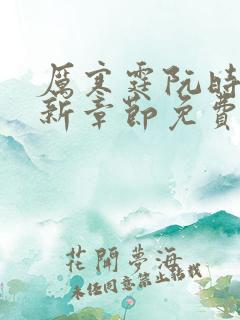 厲寒霆阮時
新章節免費
花開夢海
未经同意禁止转载